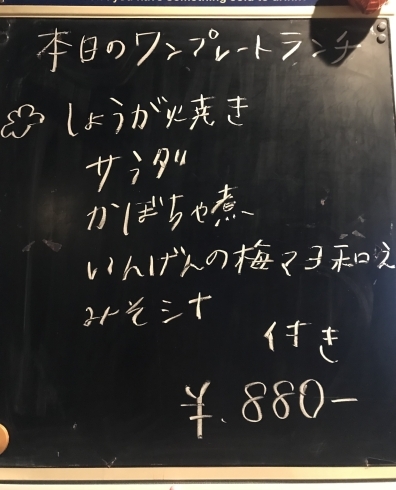 本日のワンプレートランチ
しょうが焼き
サラダ
かぼちゃ煮
いんげんの梅マヨ和え
みそシナ
付き
¥.880-